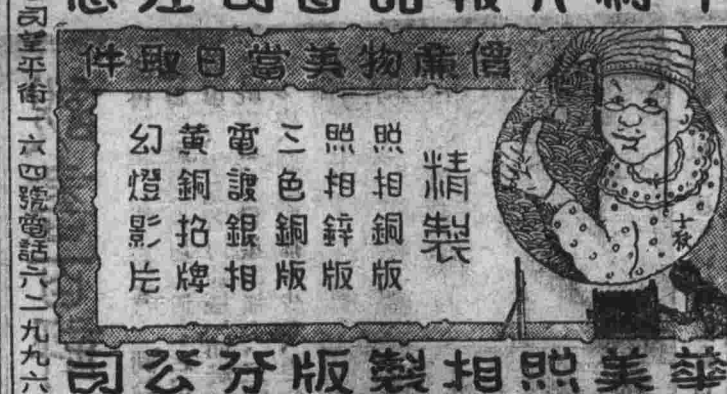 價廉物美當日取件
精製
照相銅版
照相鋅版
三色銅版
電鍍銀相
黃銅招牌
幻燈影片
華美照相製版分公司
司望平街一六四號電話六二九九六